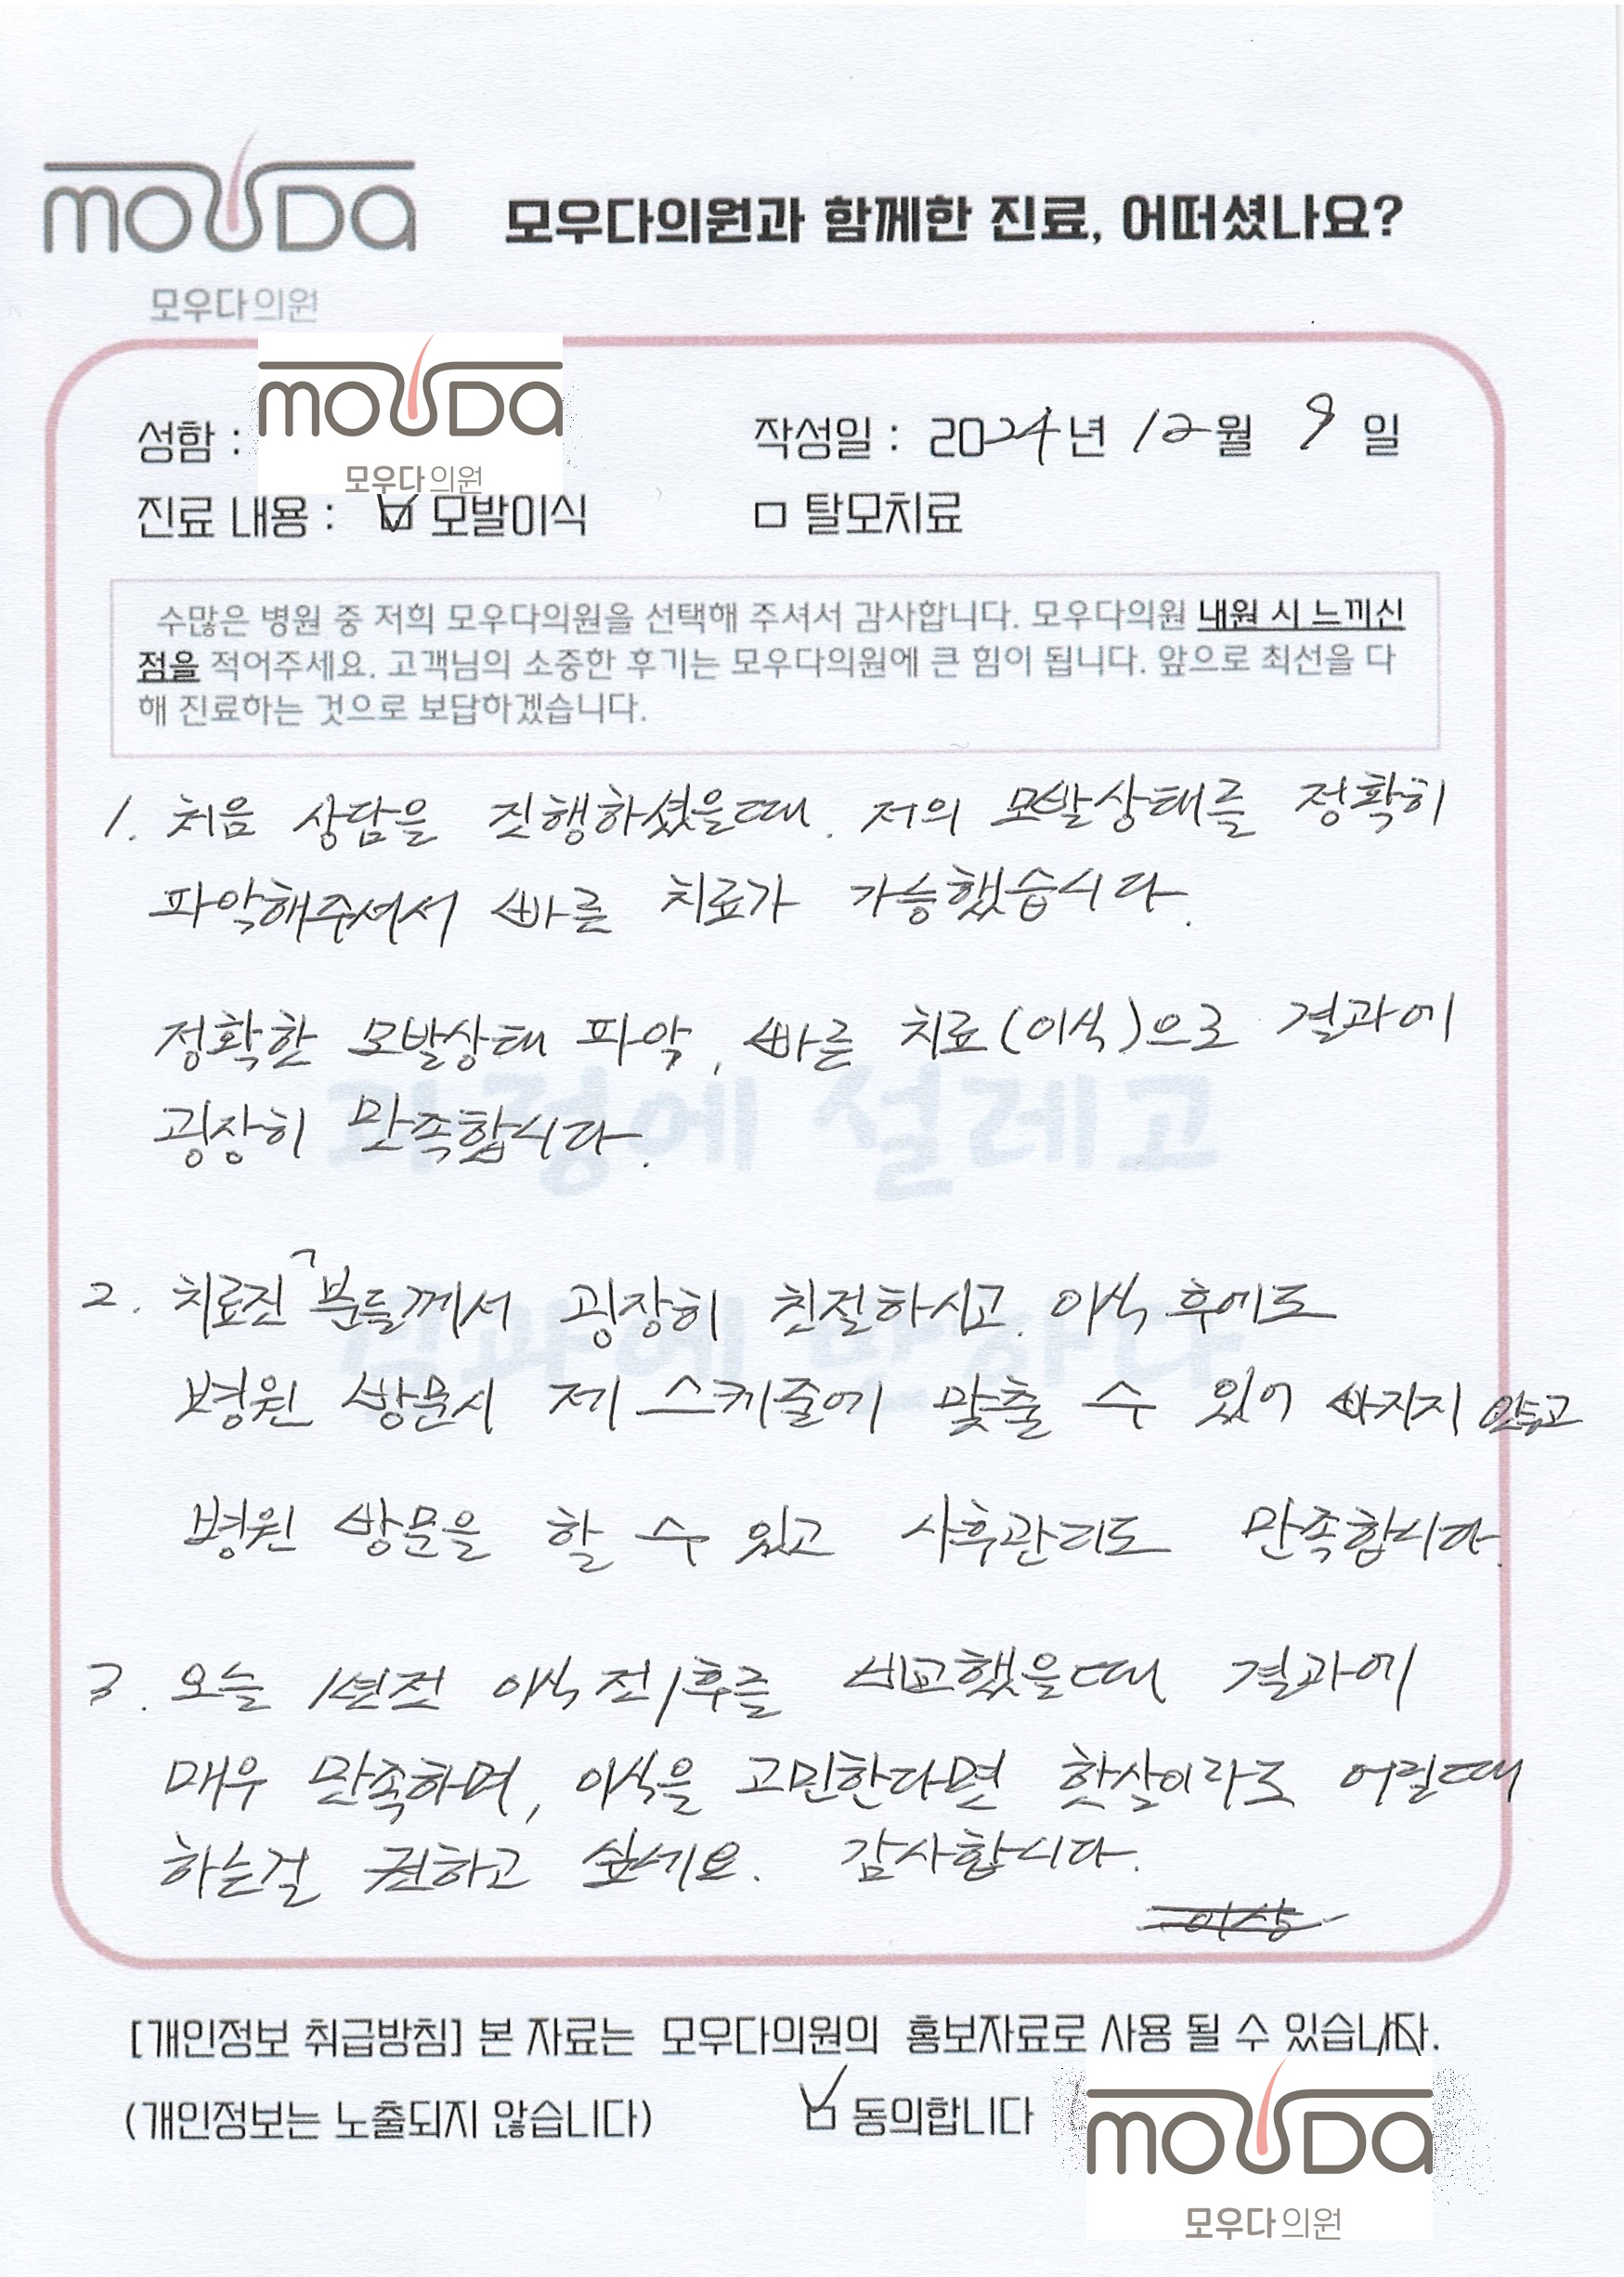 mouda
모우다의원과 함께한 진료, 어떠셨나요?
모우다의원
mouda
모우다의원
성함 :
작성일 : 2024년 12월 9일
진료 내용 : ☑ 모발이식 □ 탈모치료
수많은 병원 중 저희 모우다의원을 선택해 주셔서 감사합니다. 모우다의원 내원 시 느끼신
점을 적어주세요. 고객님의 소중한 후기는 모우다의원에 큰 힘이 됩니다. 앞으로 최선을 다
해 진료하는 것으로 보답하겠습니다.
1. 처음 상담을 진행하셨을때. 저의 모발상태를 정확히
파악해주셔서 빠른 치료가 가능했습니다.
정확한 모발상태 파악, 빠른 치료(이식)으로 결과에
굉장히 만족합니다.
과정에 설레고
2. 치료진 분들께서 굉장히 친절하시고. 이식 후에도
결과에 반하다
병원 방문시 제 스케줄에 맞출 수 있어 빠지지 않고
병원 방문을 할 수 있고 사후관리도 만족합니다.
3. 오늘 1년전 이식 전/후를 비교했을때 결과에
매우 만족하며, 이식을 고민한다면 한살이라도 어릴때
하는걸 권하고 싶네요. 감사합니다.
이상
[개인정보 취급방침] 본 자료는 모우다의원의 홍보자료로 사용 될 수 있습니다.
(개인정보는 노출되지 않습니다) ☑ 동의합니다 (
mouda
모우다의원